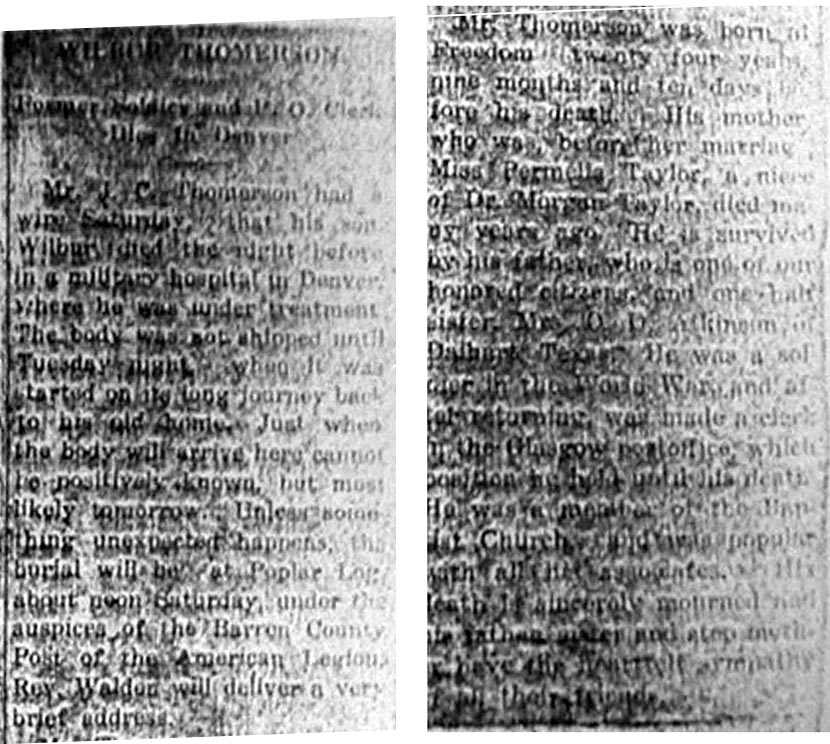 WILBUR THOMERSON
Former Soldier and P. O. Clerk
Dies In Denver
Mr. J. C. Thomerson had a
wire Saturday, that his son
Wilbur died the night before
in a military hospital in Denver,
where he was under treatment
The body was not shipped until
Tuesday night, when it was
started on its long journey back
to his old home. Just when
the body will arrive here cannot
be positively known, but most
likely tomorrow. Unless some-
thing unexpected happens, the
burial will be at Poplar Log,
about noon Saturday, under the
auspices of the Barren County
Post of the American Legion.
Rev. Walden will deliver a very
brief address.
Mr. Thomerson was born at
Freedom twenty four years,
nine months and ten days be-
fore his death. His mother
who was, before her marriage,
Miss Permelia Taylor, a niece
of Dr. Morgan Taylor, died ma-
ny years ago. He is survived
by his father, who is one of our
honored citizens, and one half
sister, Mrs. O. D. Atkinson, of
Dalhart, Texas. He was a sol
dier in the World War, and af-
er returning, was made a clerk
n the Glasgow postoffice, which
position he held until his death
He was a member of the Bap-
ist Church, and was popular
with all his associates. His
eath is sincerely mourned and
his father, sister and step moth-
have the heartfelt sympathy
all their friends.